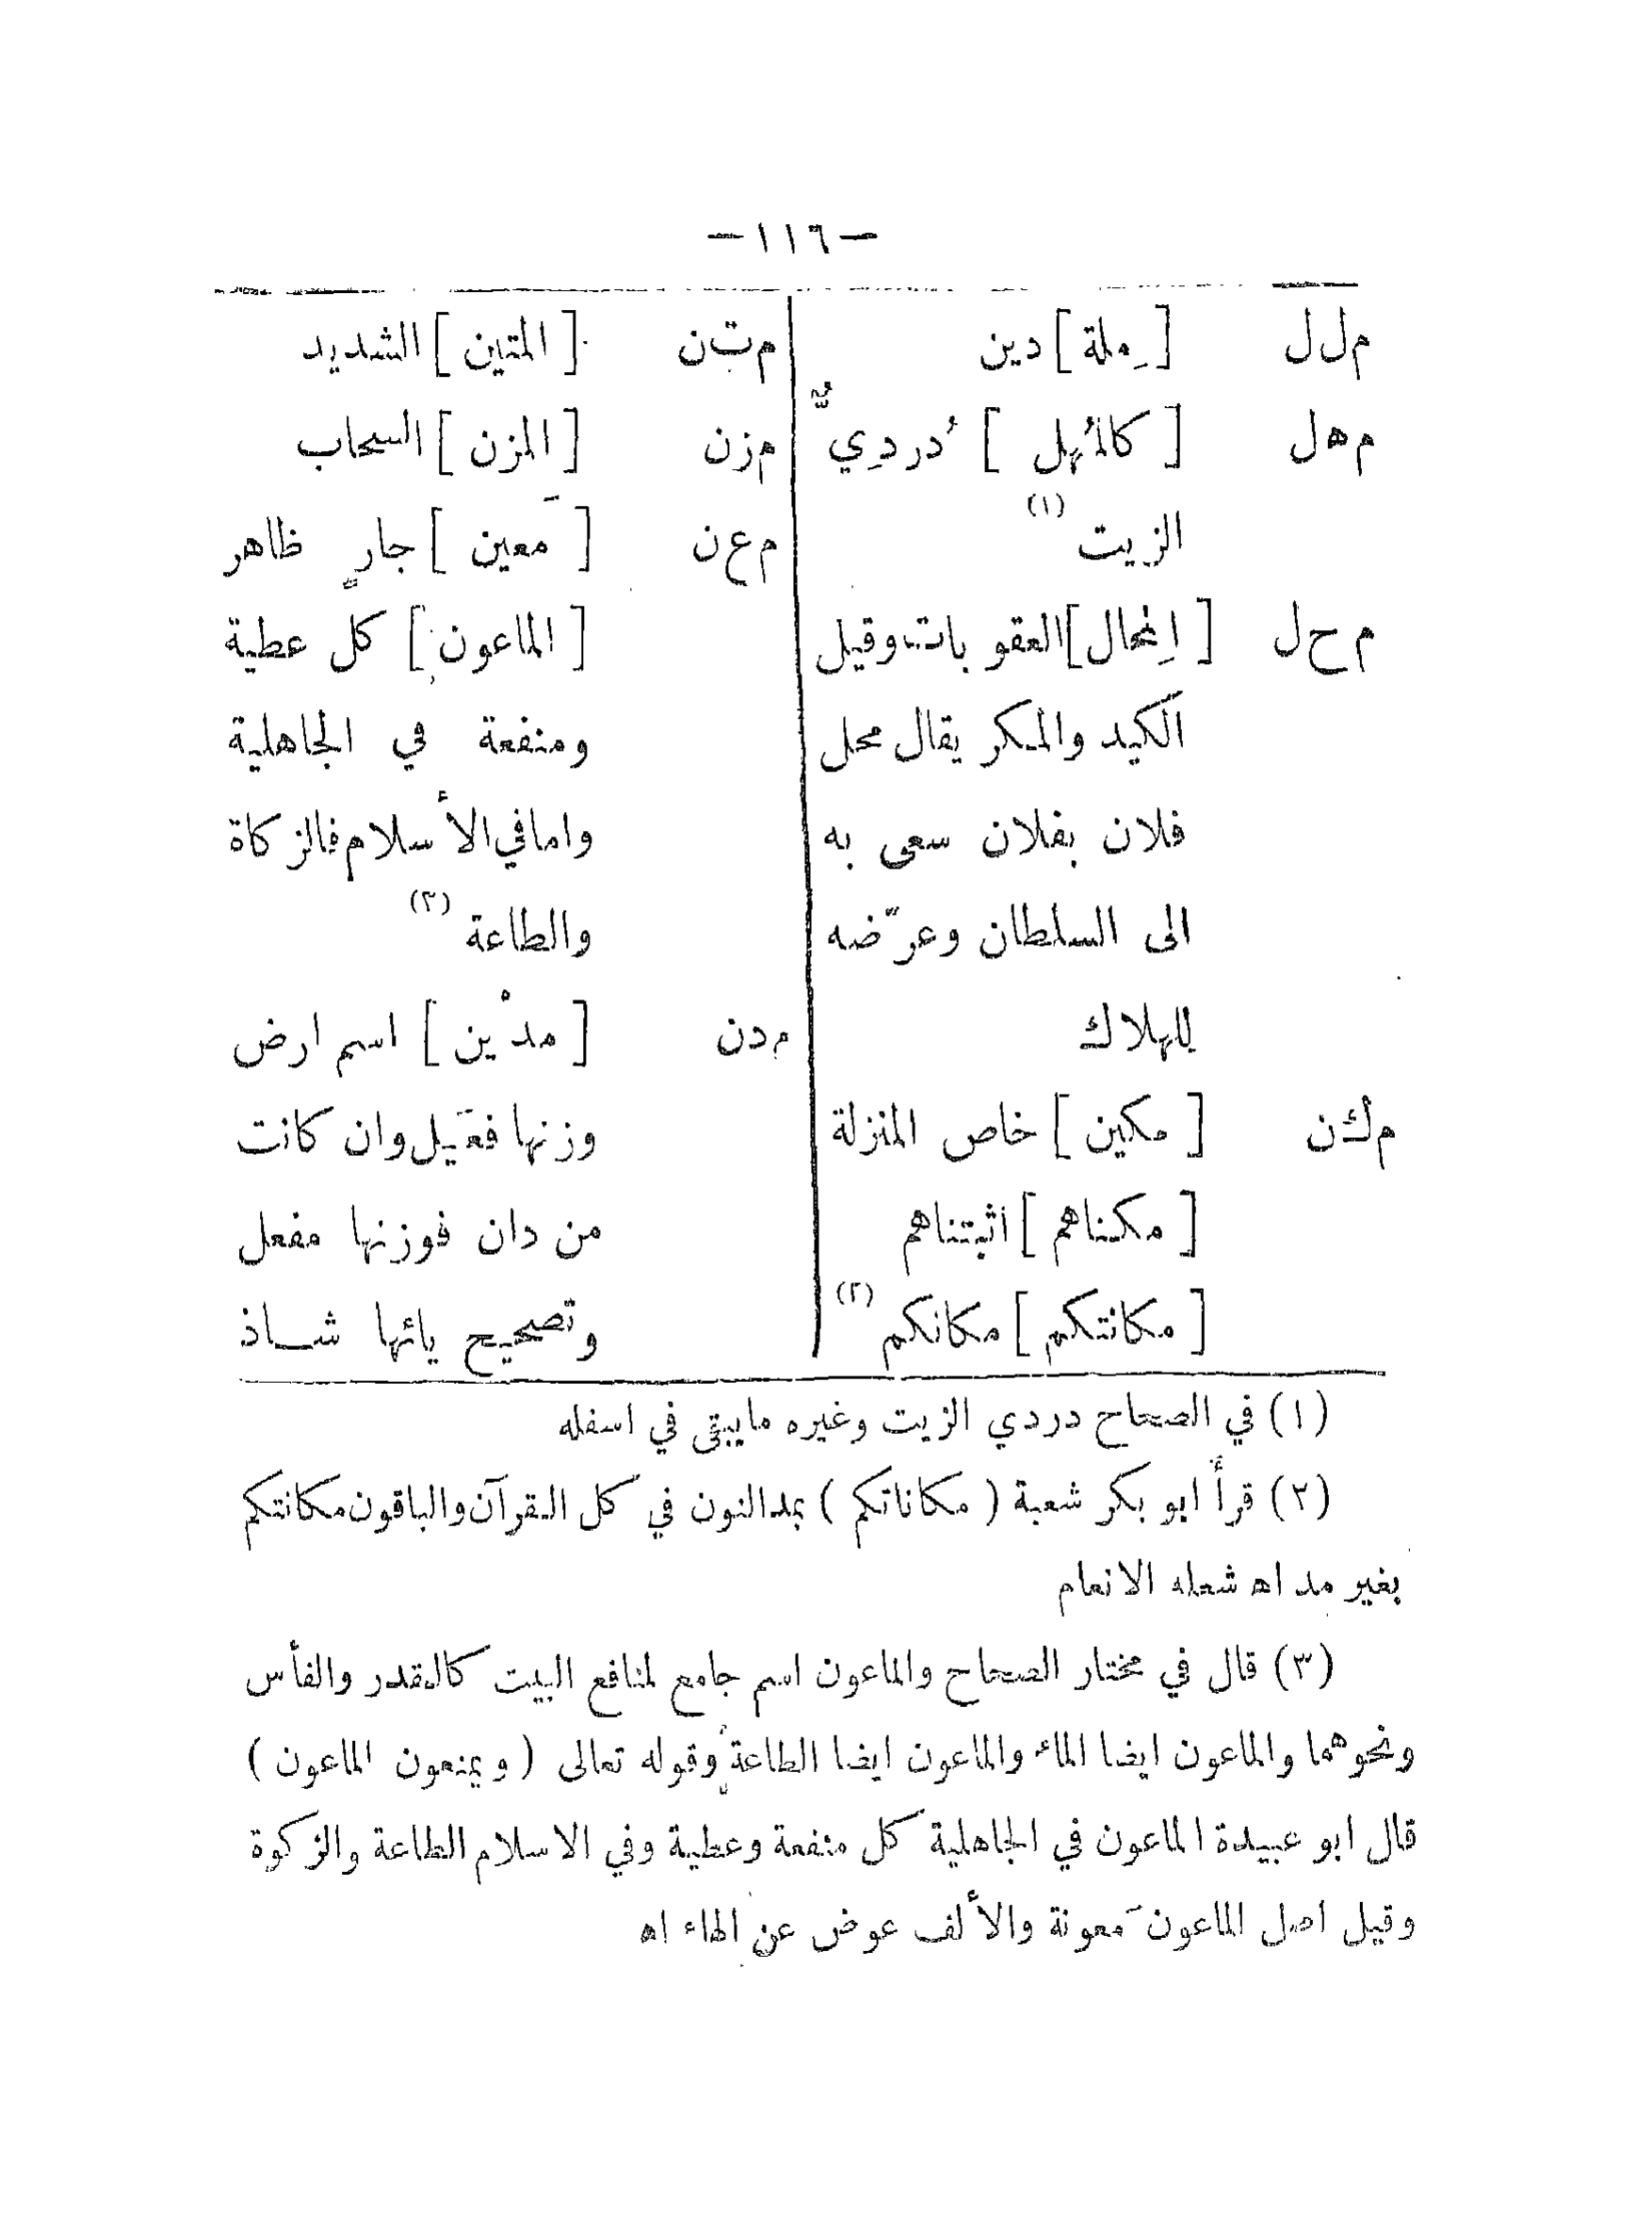 —١١٦—
م ل ل [ مِلة ] دين
م ه ل [ كالمُهل ] دُردِيُّ
الزيت (١)
م ح ل [ اِلمحال ] العقوبات وقيل
الكيد والمكر يقال محل
فلان بفلان سعى به
الى السلطان وعرّضه
للهلاك
م ك ن [ مكين ] خاص المنزلة
[ مكناهم ] اثبتناهم
[ مكانتكم ] مكانكم (٢)
م ت ن [ المتين ] الشديد
م ز ن [ المزن ] السحاب
م ع ن [ مَعين ] جارٍ ظاهر
[ الماعون ] كل عطية
ومنفعة في الجاهلية
واما في الأسلام فالزكاة
والطاعة (٣)
م د ن [ مدْين ] اسم ارض
وزنها فعيَل وان كانت
من دان فوزنها مفعل
وتصحيح يائها شاذ
(١) في الصحاح دردي الزيت وغيره مايبقى في اسفله
(٢) قرأ ابو بكر شعبة ( مكاناتكم ) بمد النون في كل القرآن والباقون مكانتكم
بغير مد اه شعله الانعام
(٣) قال في مختار الصحاح والماعون اسم جامع لمنافع البيت كالقدر والفأس
ونحوهما والماعون ايضا الماء والماعون ايضا الطاعة وقوله تعالى ( ويمنعون الماعون )
قال ابو عبيدة الماعون في الجاهلية كل منفعة وعطية وفي الاسلام الطاعة والزكوة
وقيل اصل الماعون مَعونة والألف عوض عن الهاء اه